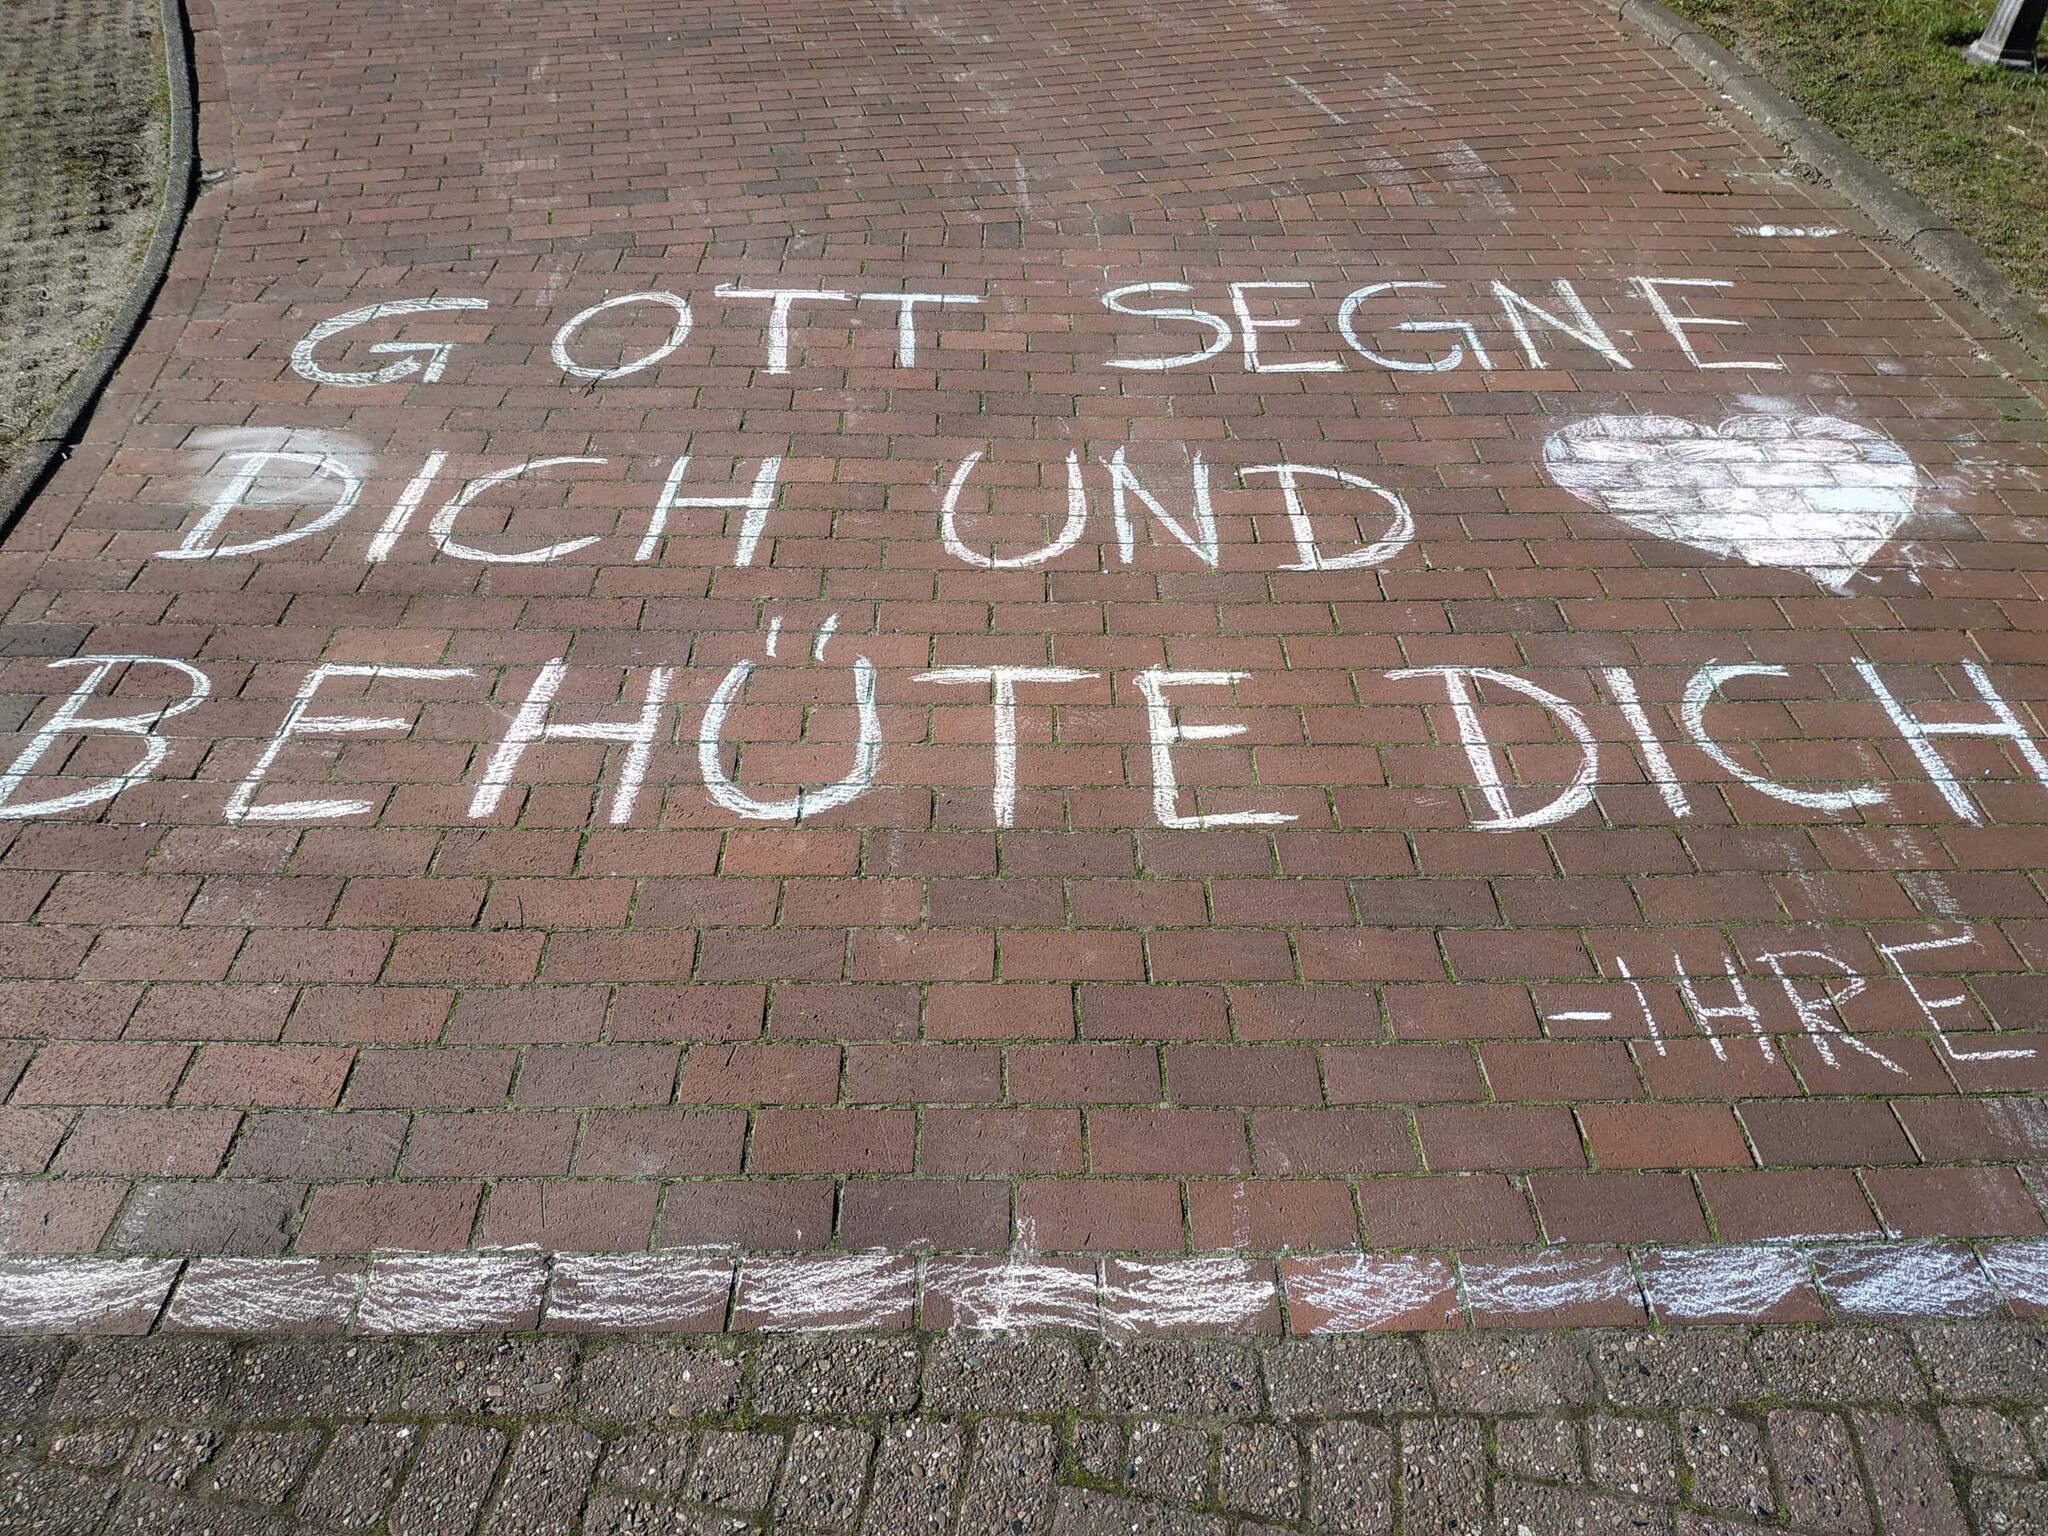 GOTT SEGNE
DICH UND
BEHÜTE DICH
-IHRE